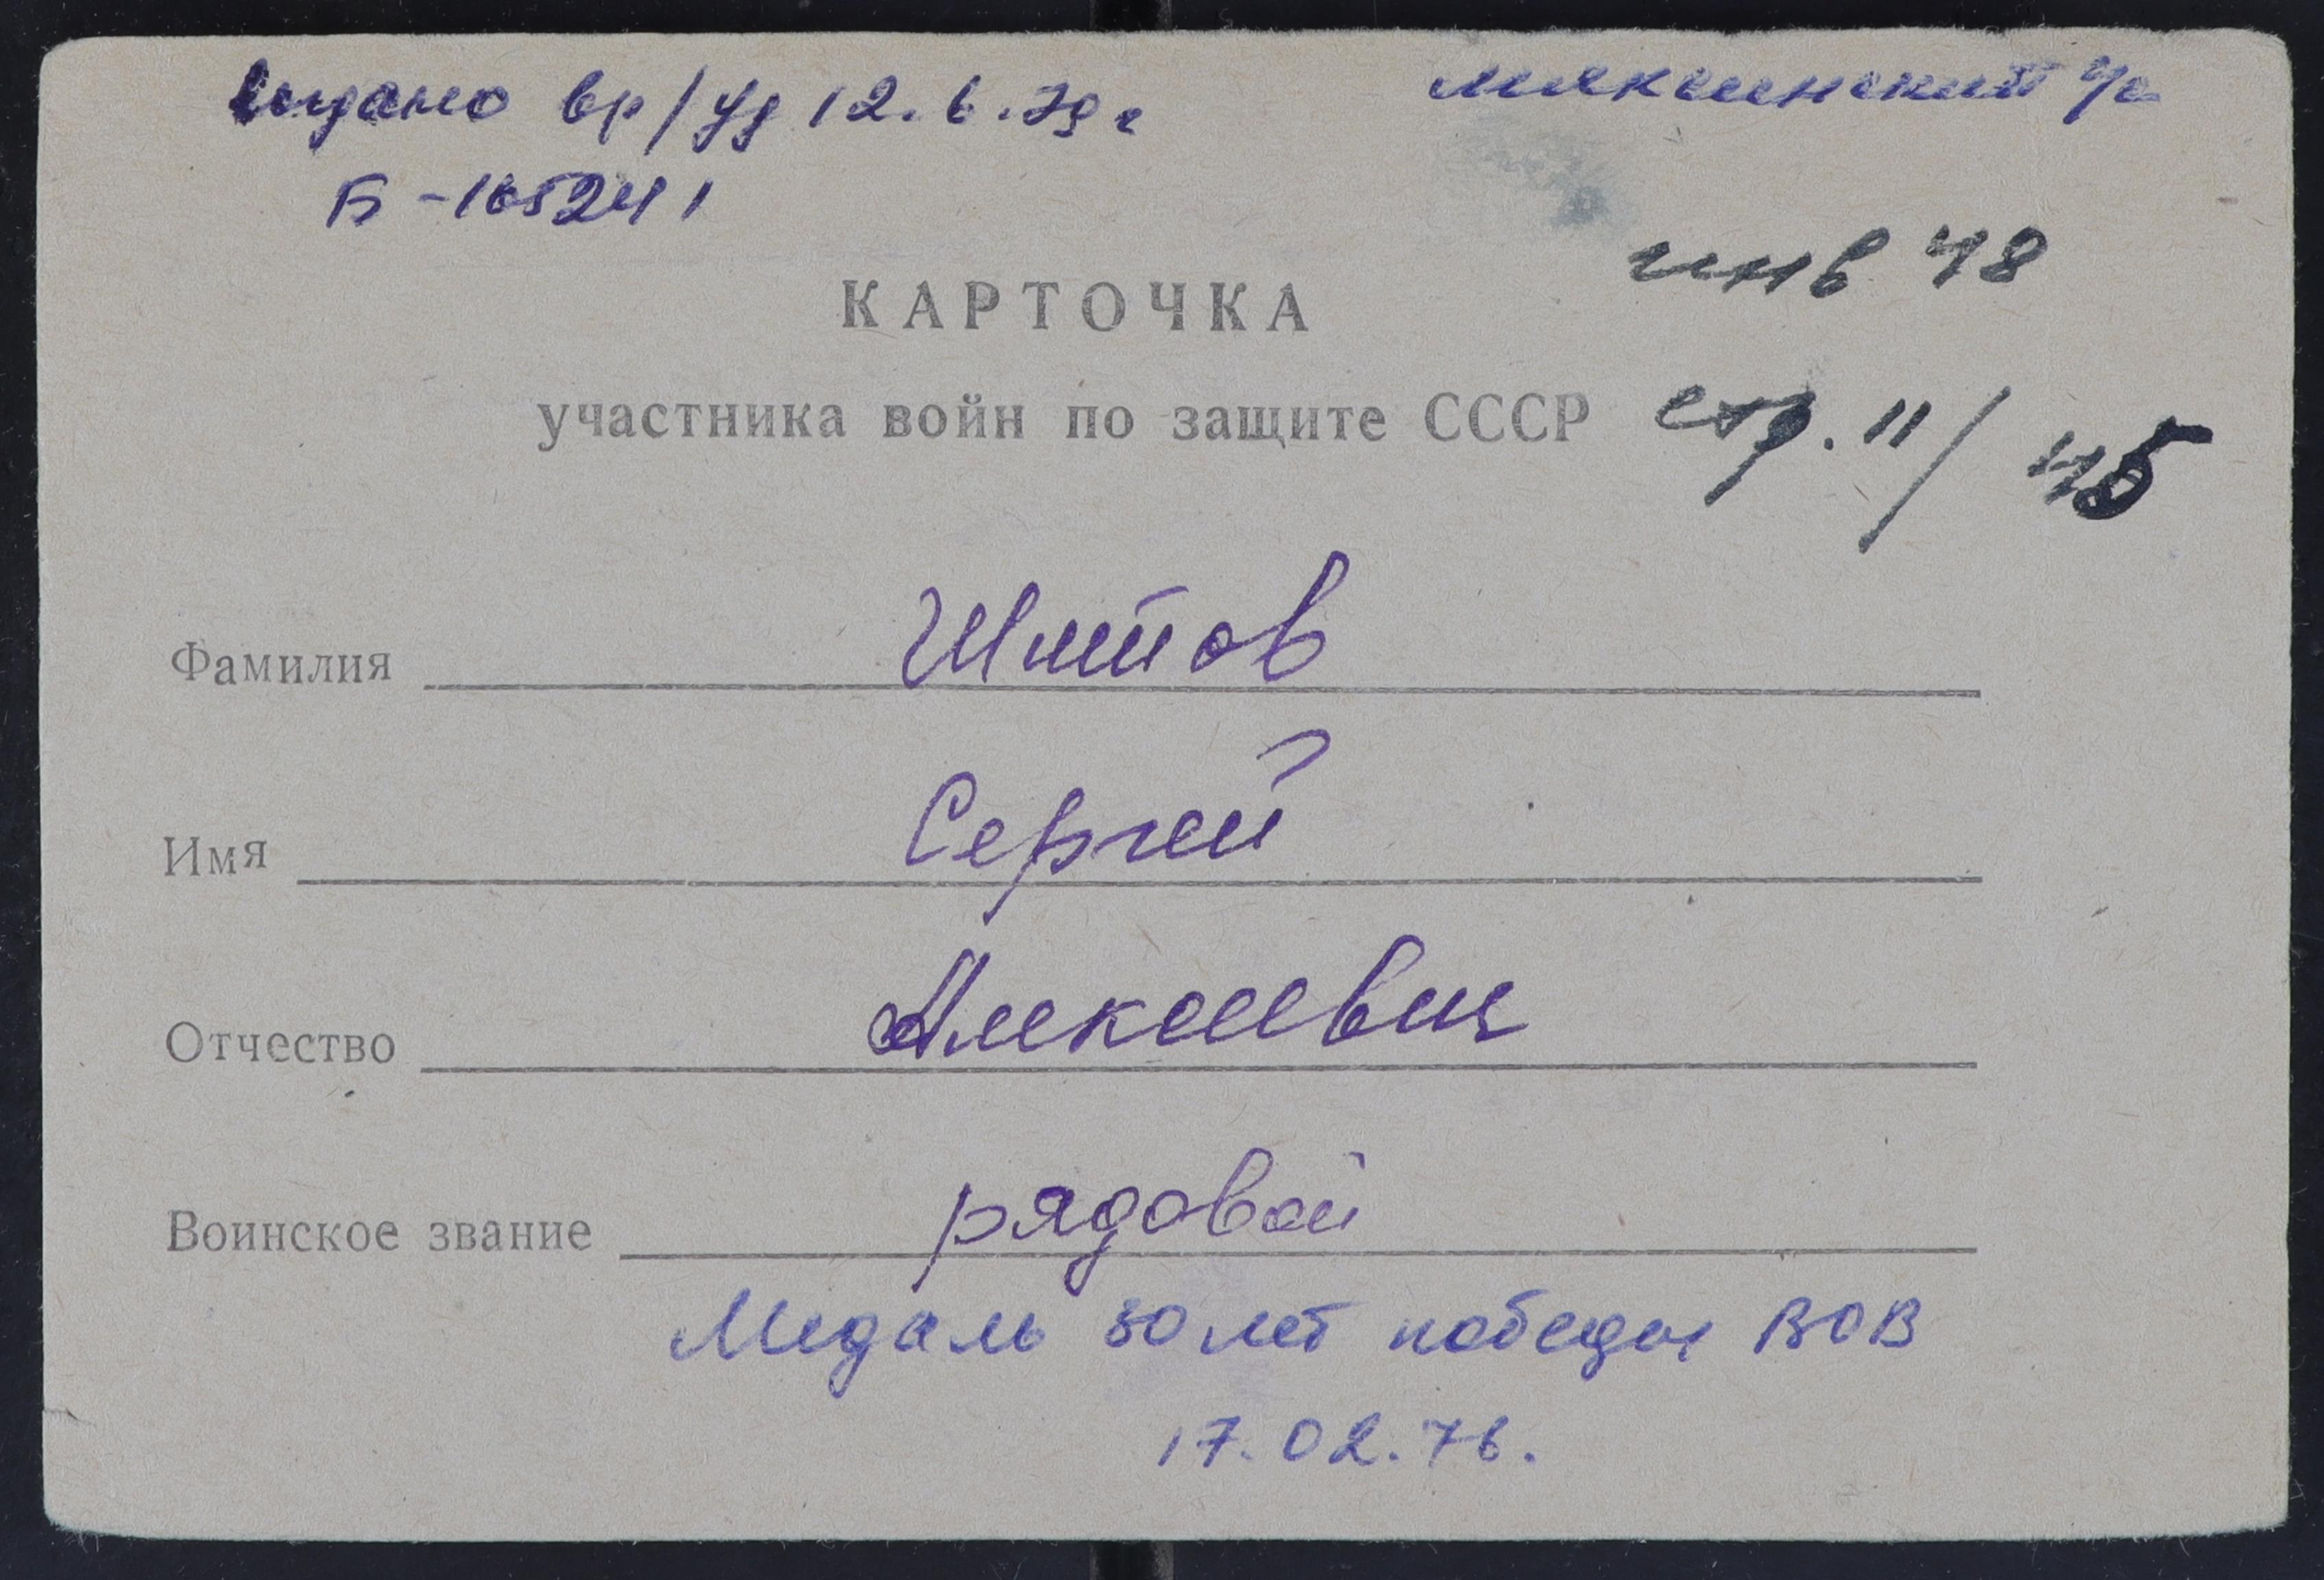 Выдано вр/уд 12.6.79 г
Мякшинский с/с
Б-165241
инв 48
КАРТОЧКА
участника войн по защите СССР
стр. 11/
Фамилия Шитов
Имя Сергей
Отчество Алексеевич
Воинское звание рядовой
Медаль 30 лет победы ВОВ
17.02.76.